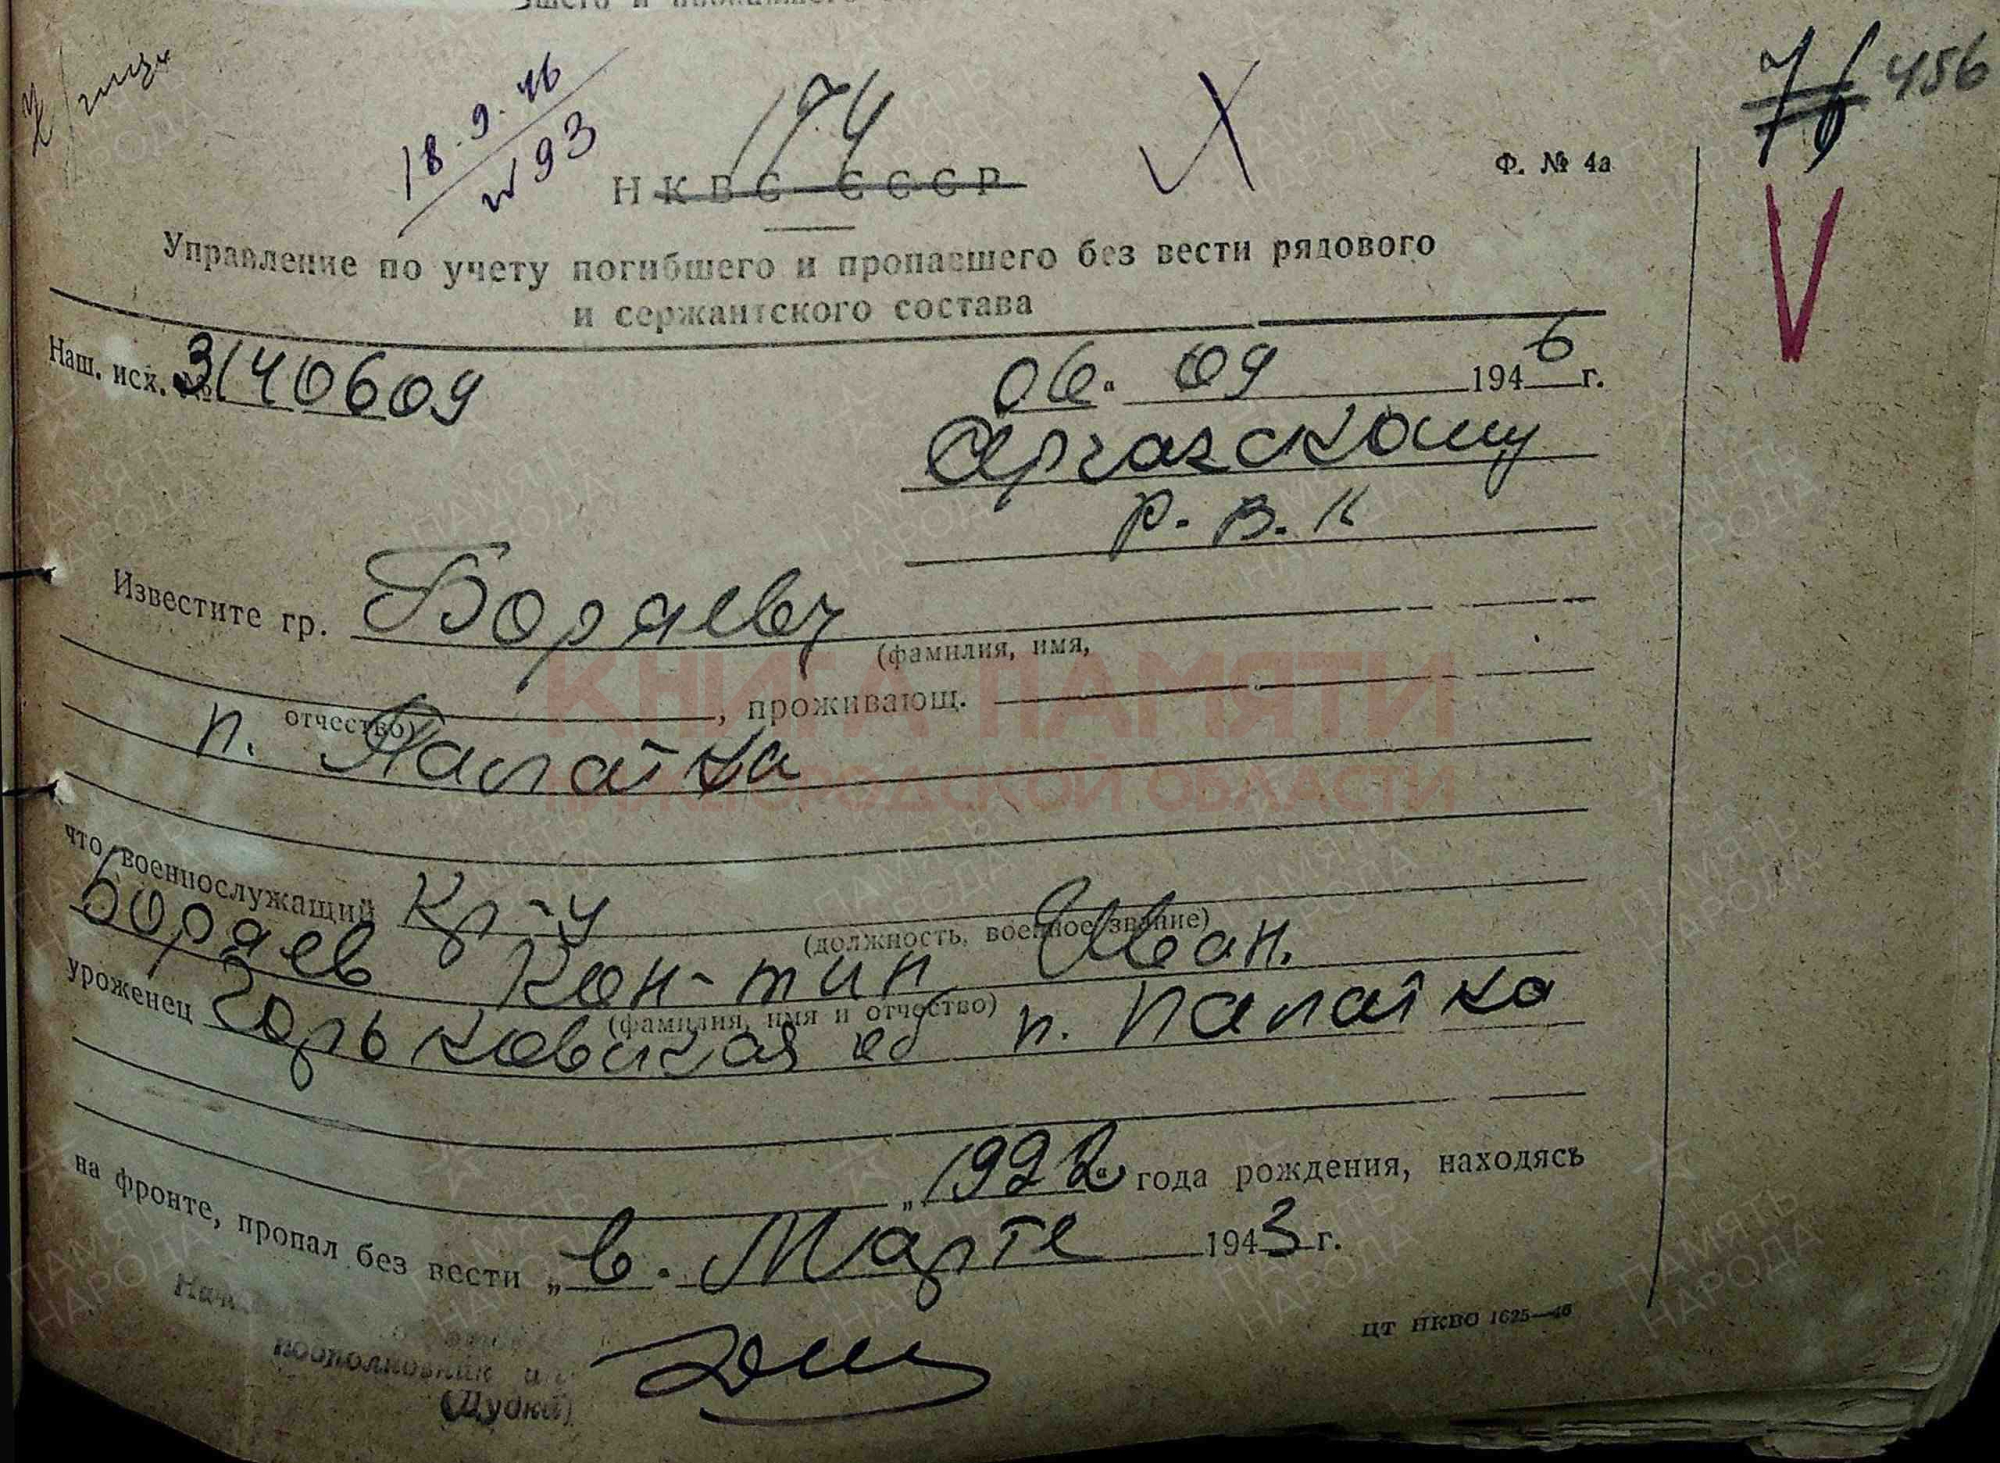 18.9.46
№93
174
Ф. № 4а
76 456
НКВС СССР
Управление по учету погибшего и пропавшего без вести рядового
и сержантского состава
Наш. исх. № 3140609
06. 09 1946 г.
Р.В.К
Известите гр. Бораеву
(фамилия, имя,
отчество) , проживающ.
п. Палатка
что военнослужащий Кр-ц
(должность, военное звание)
Бораев Кон-тин Иван.
(фамилия, имя и отчество)
уроженец Горьковская об п. Палатка
„1922" года рождения, находясь
на фронте, пропал без вести „в. Марте 1943 г.
ЦТ НКВО 1625—46
подполковник
(Дудка)
КНИГА ПАМЯТИ
НИЖЕГОРОДСКОЙ ОБЛАСТИ
ПАМЯТЬ
НАРОДА